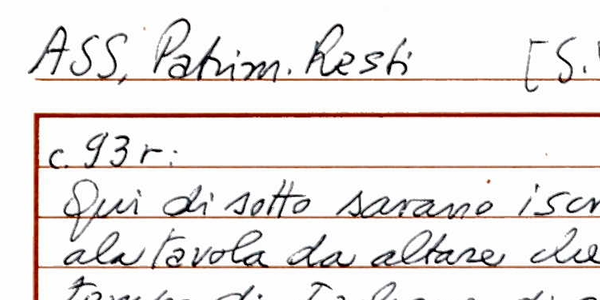 ASS, Patrim. Resti [S.
c. 93 r:
Qui di sotto sarano iscr
ala tavola da altare che
di